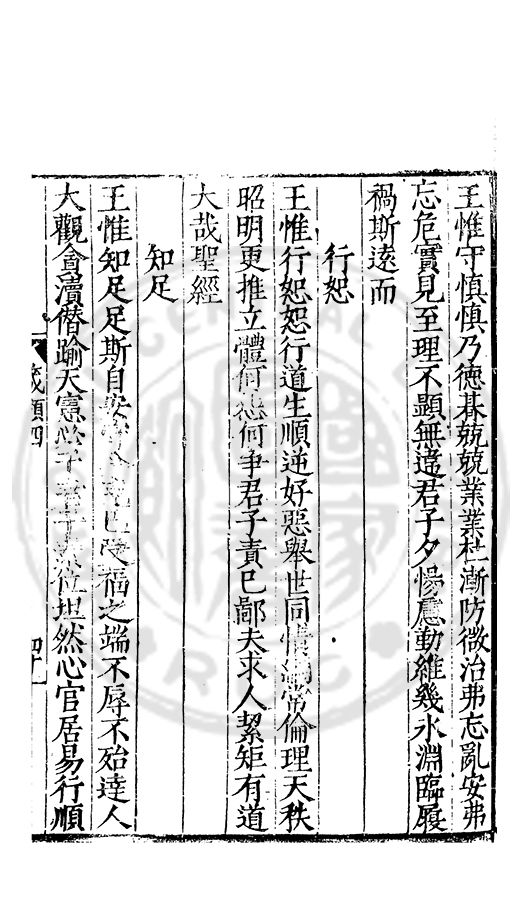 王惟守慎慎乃德基兢兢業業杜漸防微治弗忘亂安弗
忘危實見至理不顯無違君子夕惕應動維幾氷淵臨履
禍斯遠而
行恕
王惟行恕恕行道生順逆好惡舉世同情綱常倫理天秩
昭明更推立體何惡何爭君子責己鄙夫求人絜矩有道
大哉聖經
知足
王惟知足足斯自安受福之端不辱不殆達人
大觀貪瀆僭踰天憲位坦然心官居易行順
箴類四
四十一